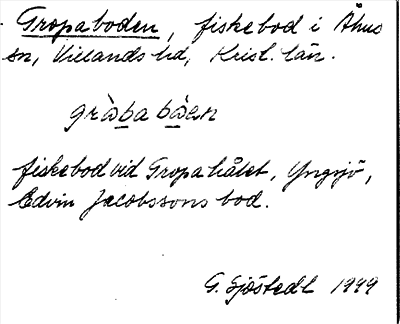 Gropaboden, fiskebod i Åhus
sn, Villands hd, Krist. län.
gràbabàen
fiskebod vid Gropahålet, Yngsjö,
Edvin Jacobssons bod.
G. Sjöstedt 1949